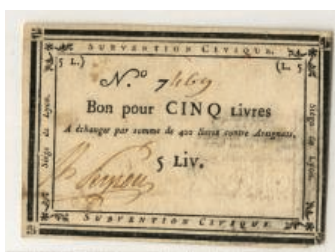 SUBVENTION CIVIQUE.
(5 L.) (L. 5
N.º 7469
Bon pour CINQ Livres
A échanger par somme de 400 livres contre Assignats.
5 Liv.
Siége de Lyon.
Siége de Lyon.
SUBVENTION CIVIQUE.